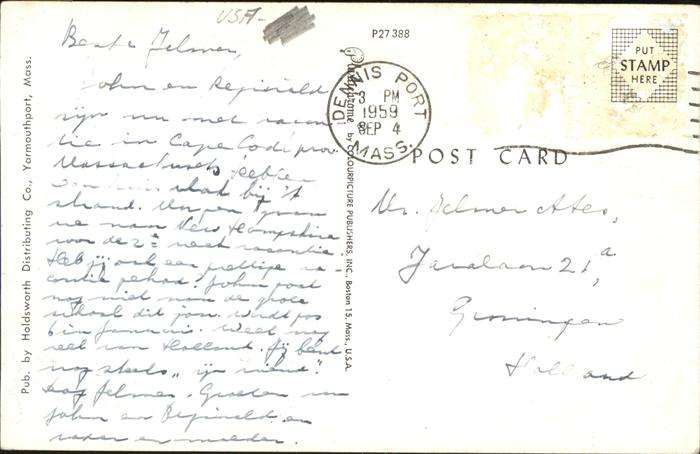 USA-
P27388
Beste Jelmer,
John en Reginald
zijn nu met vacan
tie in Cape Cod, prov.
Massachusets hebben
vlak bij 't
strand. Morgen gaan
we naar New Hampshire
voor de 2e week vacantie.
Heb jij ook een prettige va-
cantie gehad. John gaat
nog niet naar de grote
school dit jaar. Wordt pas
6 in Januari. Weet nog
veel van Holland. Jij bent
nog steeds "zijn vriend".
Dag Jelmer. Groeten van
John en Reginald en
vader en moeder.
Pub. by Holdsworth Distributing Co., Yarmouthport, Mass.
Plastichrome by COLOURPICTURE PUBLISHERS, INC., Boston 15, Mass., U.S.A.
DENNIS PORT
3 PM
1959
SEP 4
MASS.
PUT
STAMP
HERE
POST CARD
Mr. Jelmer Ates,
Javalaan 21a,
Groningen
Holland